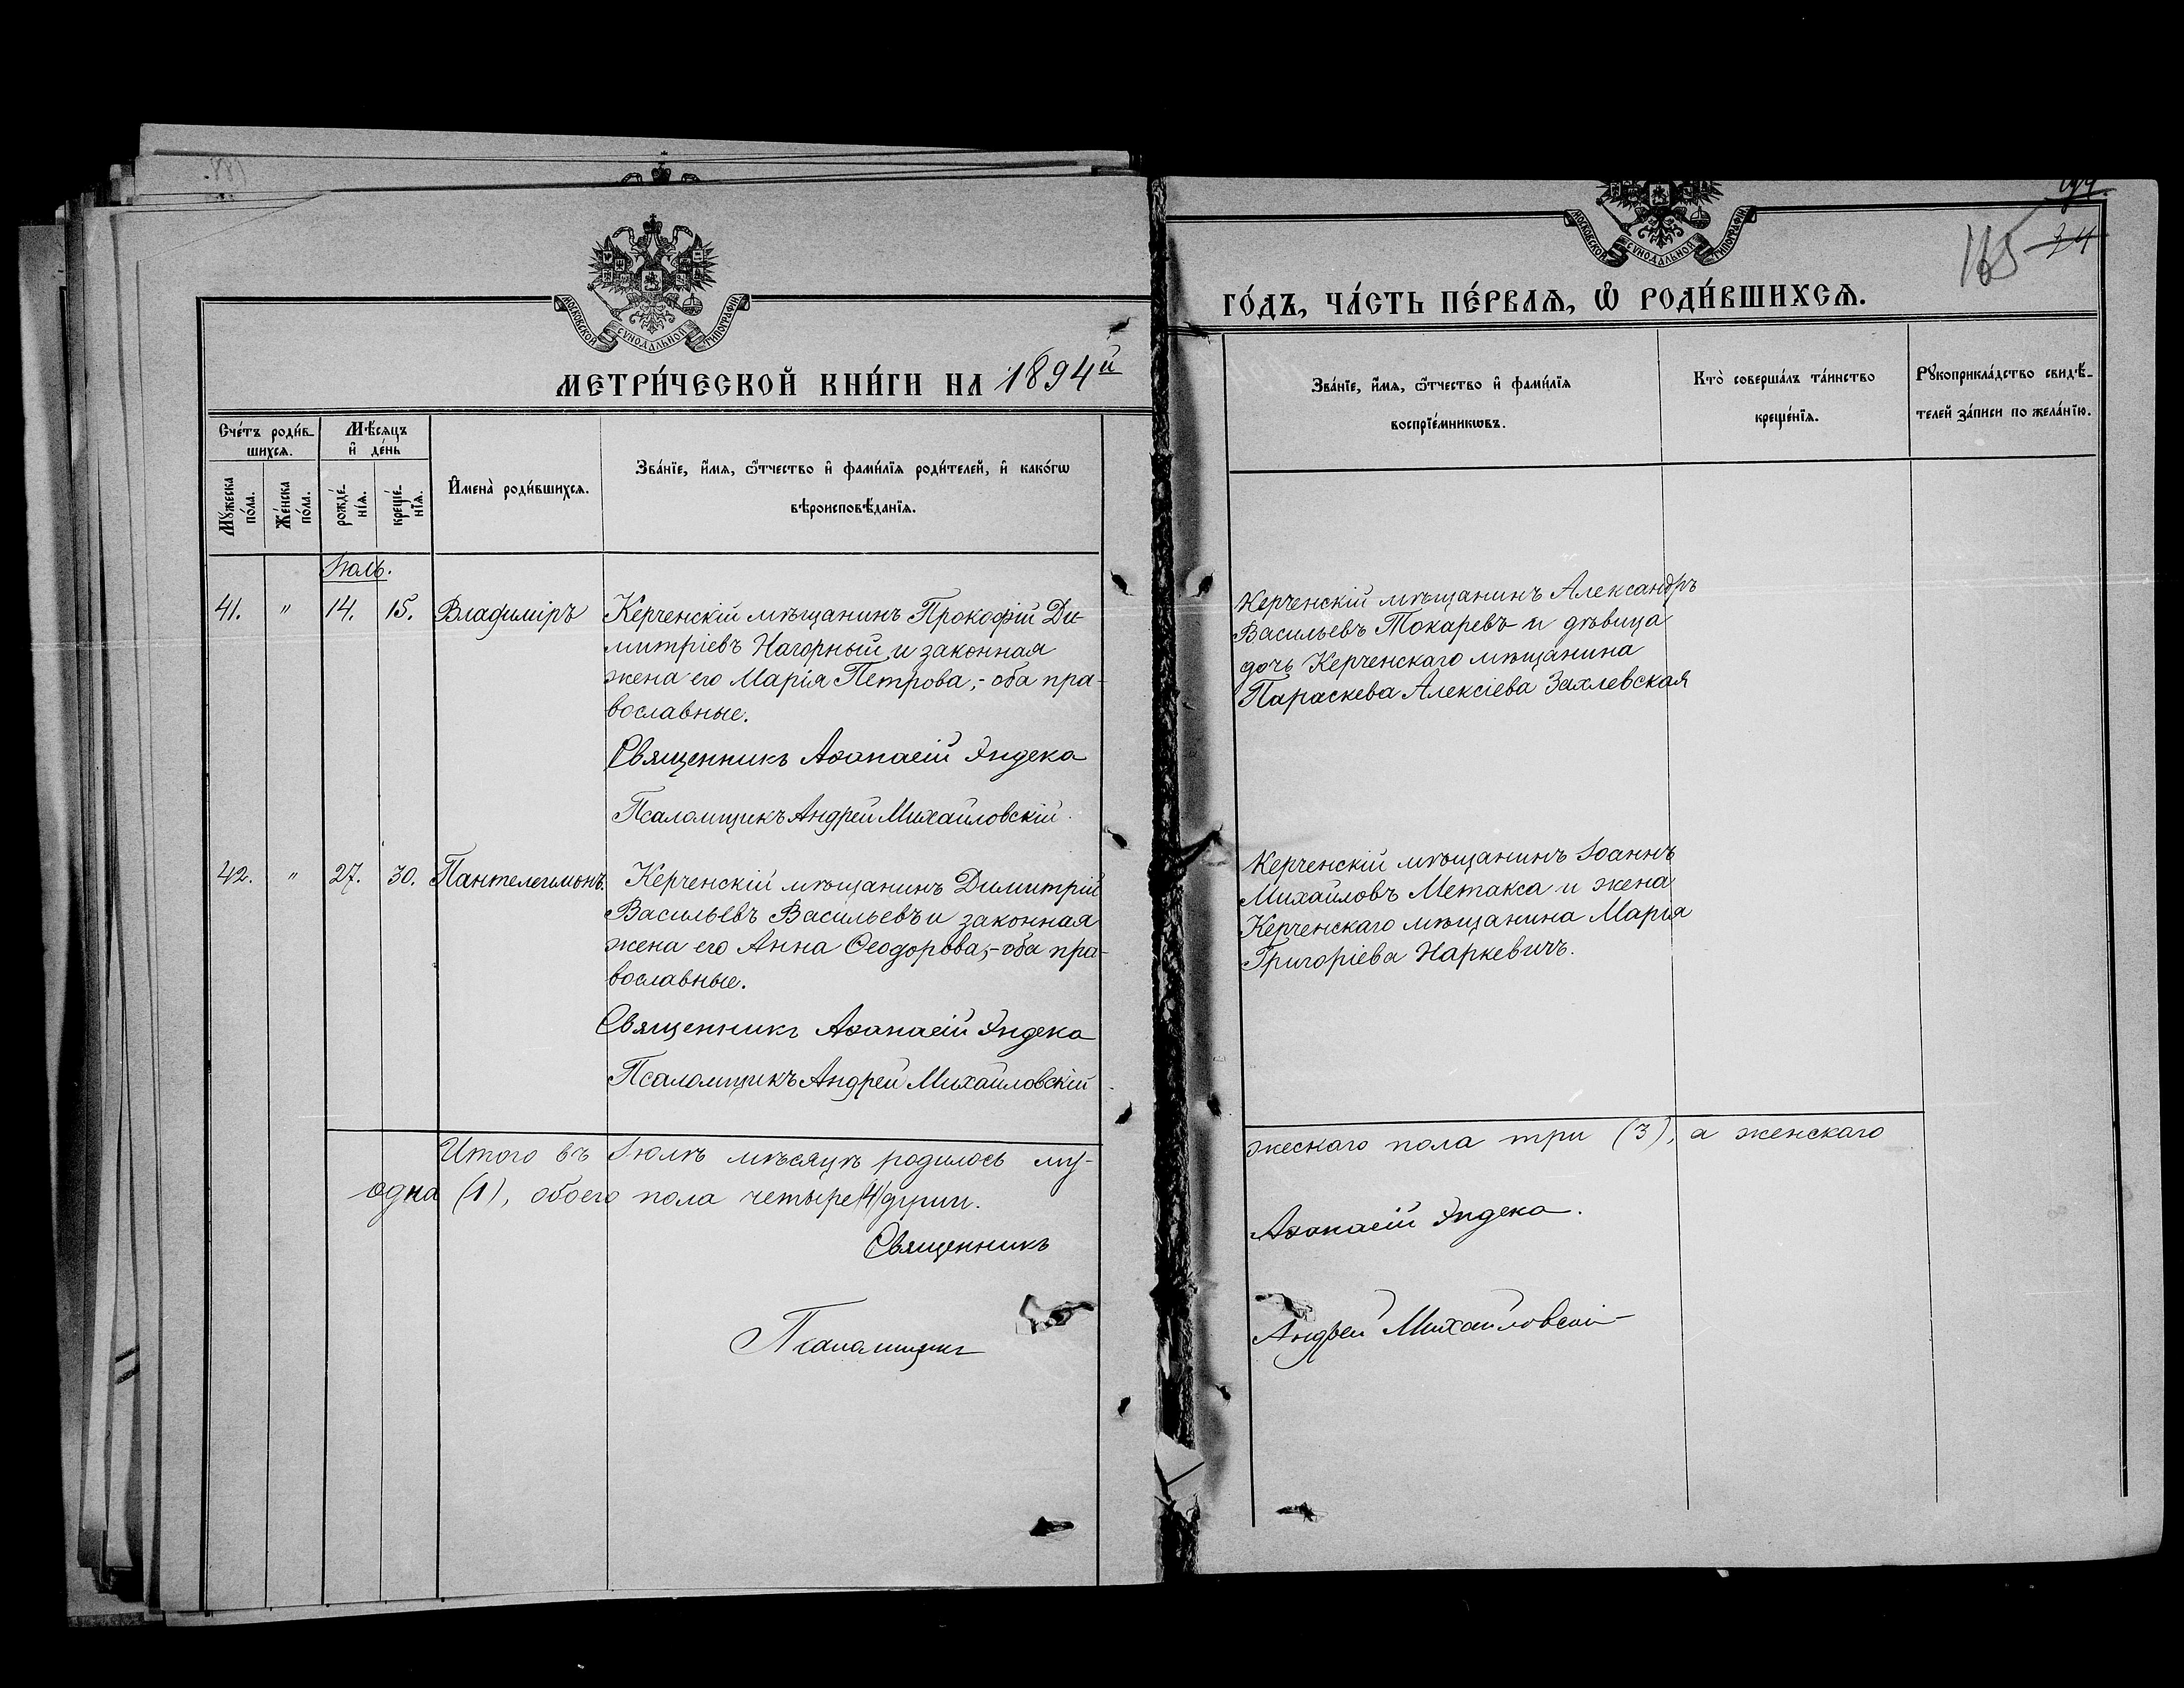 МОСКОВСКОЙ СѴНОДАЛЬНОЙ ТИПОГРАФІИ
МЕТРИ́ЧЕСКОЙ КНИ́ГИ НА 1894й
Сче́тъ роди́в-
шихсѧ.
Мѣ́сѧцъ
и҆ де́нь
Мꙋ́жеска
по́ла.
Же́нска
по́ла.
рожде́-
нїѧ.
креще́-
нїѧ.
И҆мена̀ роди́вшихсѧ.
Зва́нїе, и҆́мѧ, ѻ҆́тчество и҆ фами́лїѧ роди́телей, и҆ како́гѡ
вѣроисповѣ́данїѧ.
Іюль.
41. " 14. 15. Владиміръ
Керченскій мѣщанинъ Прокофій Ди-
митріевъ Нагорный и законная
жена его Марія Петрова,- оба пра-
вославные.
Священникъ Аѳанасій Эндека
Псаломщикъ Андрей Михайловскій.
42. " 27. 30. Пантелеимонъ.
Керченскій мѣщанинъ Димитрій
Васильевъ Васильевъ и законная
жена его Анна Ѳеодорова,- оба пра-
вославные.
Священникъ Аѳанасій Эндека
Псаломщикъ Андрей Михайловскій
Итого въ Іюлѣ мѣсяцѣ родилось му-
одна (1), обоего пола четыре (4) души.
Священникъ
Псаломщикъ
165 34
МОСКОВСКОЙ СѴНОДАЛЬНОЙ ТИПОГРАФІИ
ГО́ДЪ, ЧА́СТЬ ПЕ́РВАѦ, Ѡ҆ РОДИ́ВШИХСѦ.
Зва́нїе, и҆́мѧ, ѻ҆́тчество и҆ фами́лїѧ
воспрїе́мникѡвъ.
Кто̀ соверша́лъ та́инство
креще́нїѧ.
Рꙋкоприкла́дство свидѣ́-
телей за́писи по жела́нїю.
Керченскій мѣщанинъ Александръ
Васильевъ Токаревъ и дѣвица
дочь Керченскаго мѣщанина
Параскева Алексіева Захлевская
Керченскій мѣщанинъ Іоаннъ
Михайловъ Метакса и жена
Керченскаго мѣщанина Марія
Григоріева Наркевичъ.
жескаго пола три (3), а женскаго
Аѳанасій Эндека.
Андрей Михайловскій